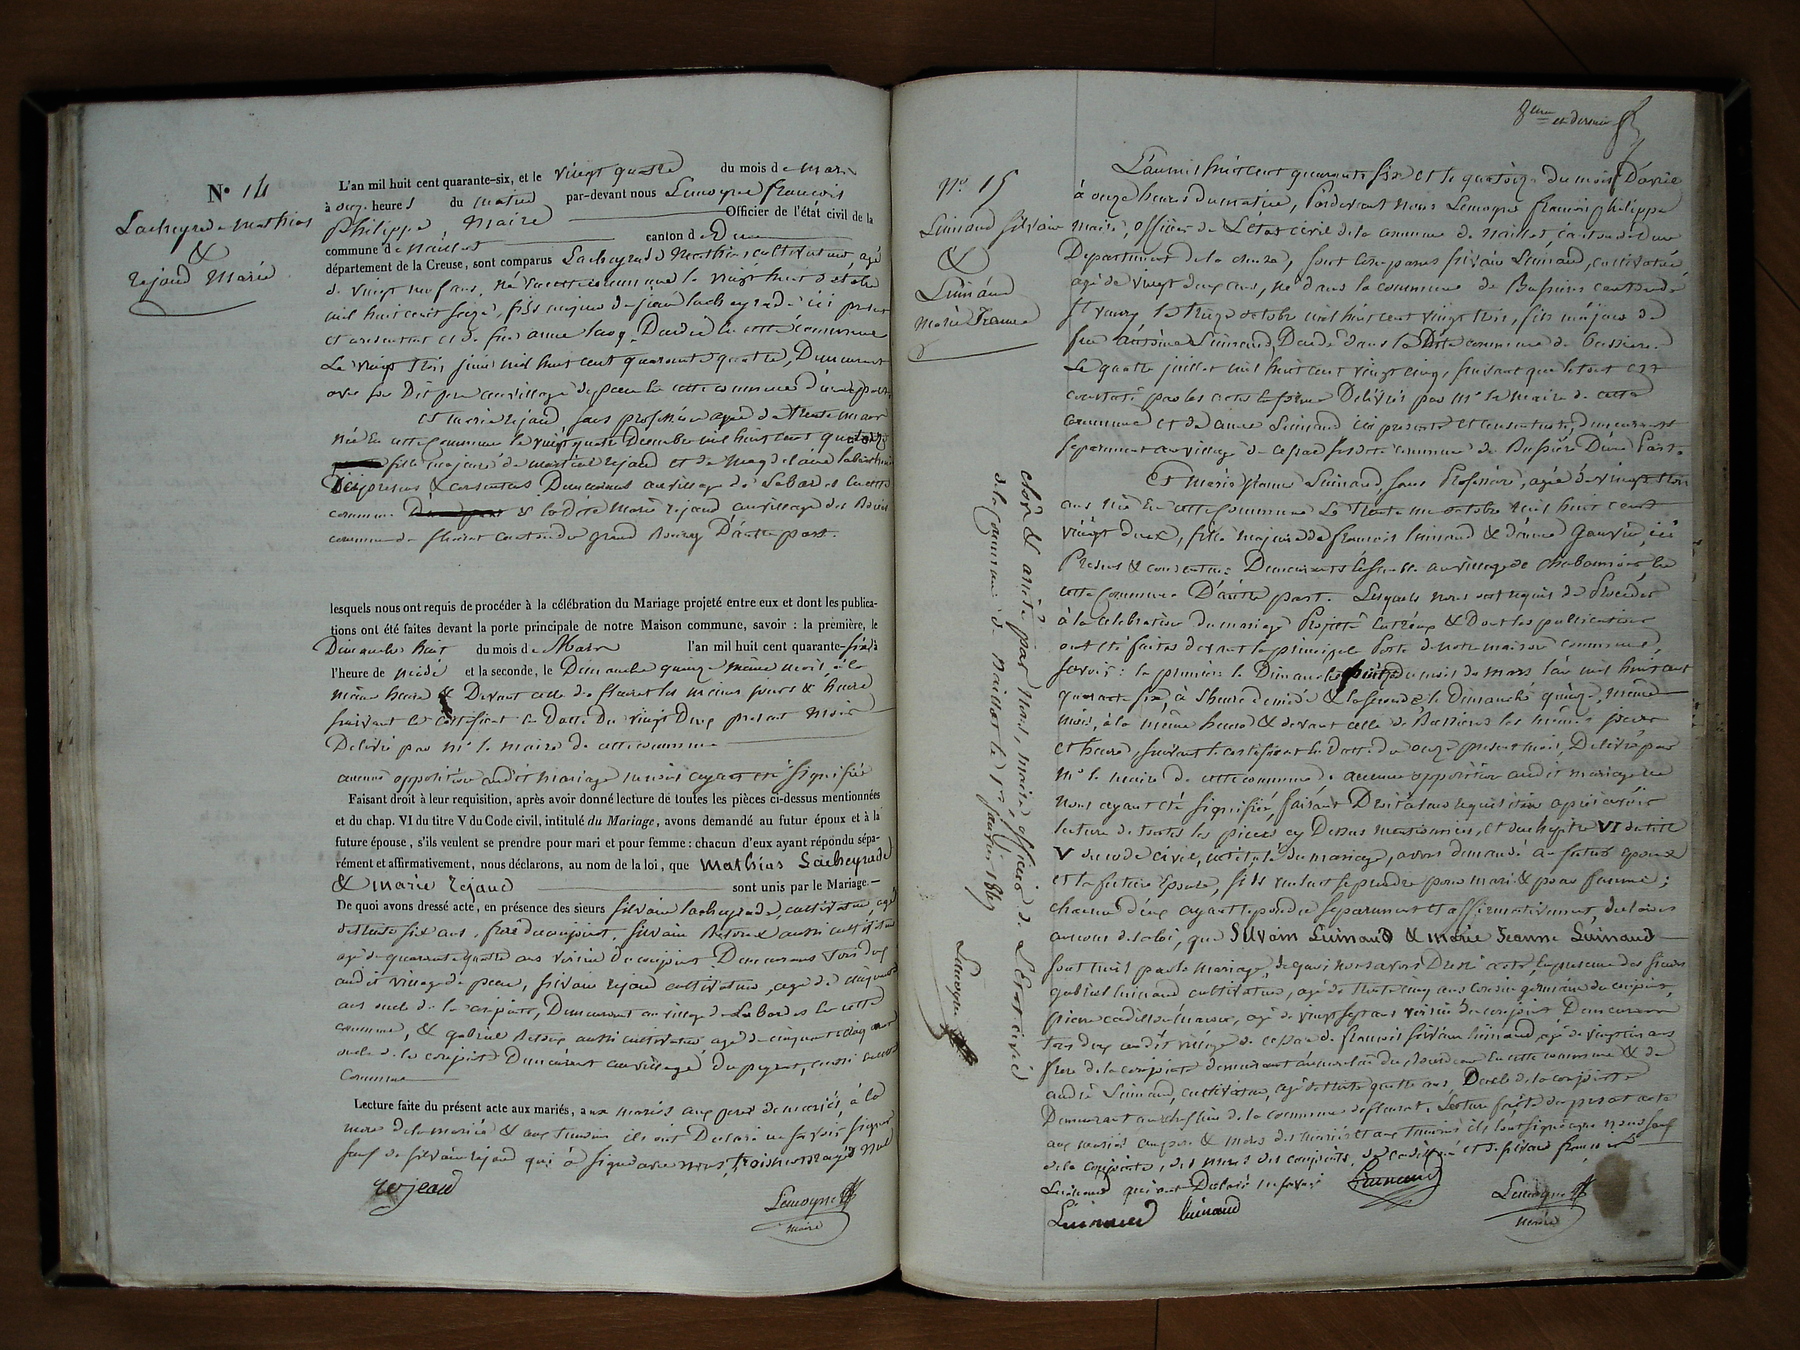 N° 14
Lacheyrade Mathias
&
rejaud Marie
L'an mil huit cent quarante-six, et le vingt quatre du mois de mars
à onze heures du matin par-devant nous Lemoyne françois
philippe Maire Officier de l'état civil de la
commune de Naillat canton de Dun
département de la Creuse, sont comparus Lacheyrade Mathias cultivateur, agé
de vingt neuf ans, né commune le vingt huit octobre
mil huit cent seize, fils majeur de jean lacheyrade ici present
et consentant et de feu anne Decedée En cette commune
Le vingt trois juin mil huit cent quarante quatre, Demeurant
avec son Dit pere au village de peu En cette commune d'une part
et marie rejaud sans profession agée de trente un ans
Née En cette Commune le vingt quatre Decembre mil huit cent quatorze
fille majeure de martial rejaud et de Magdelaine
ici presens & consentans Demeurant au village de Labardes En cette
commune & la dite Marie rejaud au village des
commune de fleurat canton du grand Bourg D'autre part.
lesquels nous ont requis de procéder à la célébration du Mariage projeté entre eux et dont les publica-
tions ont été faites devant la porte principale de notre Maison commune, savoir : la première, le
Dimanche huit du mois de Mars l'an mil huit cent quarante-six à
l'heure de midi et la seconde, le Dimanche quinze même mois, à la
même heure & Devant celle de fleurat les mêmes jours & heure
suivant le Certificat En Date Du vingt Deux present Mois
Delivré par Mr le maire de cette commune
aucune opposition audit mariage ne nous ayant été signifiée
Faisant droit à leur requisition, après avoir donné lecture de toutes les pièces ci-dessus mentionnées
et du chap. VI du titre V du Code civil, intitulé du Mariage, avons demandé au futur époux et à la
future épouse, s'ils veulent se prendre pour mari et pour femme : chacun d'eux ayant répondu sépa-
rément et affirmativement, nous déclarons, au nom de la loi, que Mathias Lacheyrade
& Marie rejaud sont unis par le Mariage.—
De quoi avons dressé acte, en présence des sieurs silvain lacheyrade, cultivateur, agé
de trente six ans, frere du conjoint, silvain aussi cultivateur
agé de quarante quatre ans voisin du conjoint Demeurans Tous deux
audit village de peu, silvain rejaud cultivateur, agé de cinquante
ans oncle de la conjointe, Demeurant au village de Labardes En cette
commune, & gabriel aussi cultivateur agé de cinquante cinq ans
oncle de la conjointe Demeurant au village du aussi
commune
Lecture faite du présent acte aux mariés, aux mariés aux peres des mariés, à la
mere de la mariée & aux temoins ils ont Declaré ne savoir signer
sauf de silvain rejaud qui à signé avec nous,
rejeaud
Lemoyne
maire
8eme et dernier
N° 15
Luinaud Silvain
&
Luinaud
Marie Jeanne
L'an mil huit cent quarante six et le quatorze du mois D'avril
à onze heures du matin, Pardevant Nous Lemoyne françois philippe
maire, officier de L'état civil de la commune de Naillat, canton de Dun
Departement de la Creuse, sont comparus silvain Luinaud, cultivateur,
agé de vingt deux ans, né dans la commune de Bussiere canton de
St vaury le treize octobre mil huit cent vingt trois, fils majeur de
feu Antoine Luinaud, Decedé dans la Dite commune de bussiere
Le quatre juillet mil huit cent vingt cinq, suivant que le tout est
constaté par les actes En forme Delivrés par Mr le Maire de cette
commune et de anne Luinaud ici presente et consentante, demeurant
separement au village de susdite commune de Bussiere D'une Part.
Et Marie jeanne Luinaud, sans Profession, agée de vingt trois
ans née En cette Commune Le Trente un octobre mil huit cent
vingt deux, fille majeure de françois luinaud & d'anne ici
Presens & consentans Demeurants Ensemble au village de En
cette commune D'autre part. Lesquels nous ont requis de Proceder
à la celebration du mariage Projetté Entr'eux & Dont les publications
ont été faites devant la principale Porte de notre maison commune,
savoir : la premiere le Dimanche du mois de mars l'an mil huit cent
quarante six à L'heure de midi & la seconde le Dimanche quinze même
mois, à la même heure & devant celle de Bussiere les mêmes jours
et heure, suivant le certificat En Date du onze present mois, Delivré par
Mr le maire de cette commune, aucune opposition audit mariage ne
nous ayant été signifiée, faisant Droit à leur requisition après avoir
lecture de toutes les pieces cy Dessus mentionnées, et du chapitre VI du titre
V du code civil, intitulé du mariage, avons demandé au futur epoux
et la future epouse, s'ils veulent se prendre pour mari & pour femme ;
chacun d'eux ayant repondu separement et affirmativement, declarons
au nom de la loi, que Silvain Luinaud & Marie Jeanne Luinaud
sont unis par le mariage, de quoi nous avons Dressé acte, En presence des sieurs
gabriel luinaud cultivateur, agé de trente cinq ans cousin germain du conjoint,
pierre agé de vingt sept ans voisin du conjoint Demeurans
tous deux audit village de de françois silvain luinaud, agé de vingt un ans
frere de la conjointe demeurant En cette commune & de
andré Luinaud, cultivateur, agé de trente quatre ans, oncle de la conjointe
Demeurant au de la commune de fleurat. Lecture faite du present acte
aux mariés aux pere & meres des mariés et aux temoins ils ont signé avec nous sauf
de la conjointe, des meres des conjoints, de et de silvain françois
Luinaud qui ont Declaré ne savoir
Luinaud
Luinaud luinaud
Lemoyne
Maire
clos & arrêté par Nous, maire, officier de L'état civil
de la commune de Naillat le 1er janvier 1847
Lemoyne